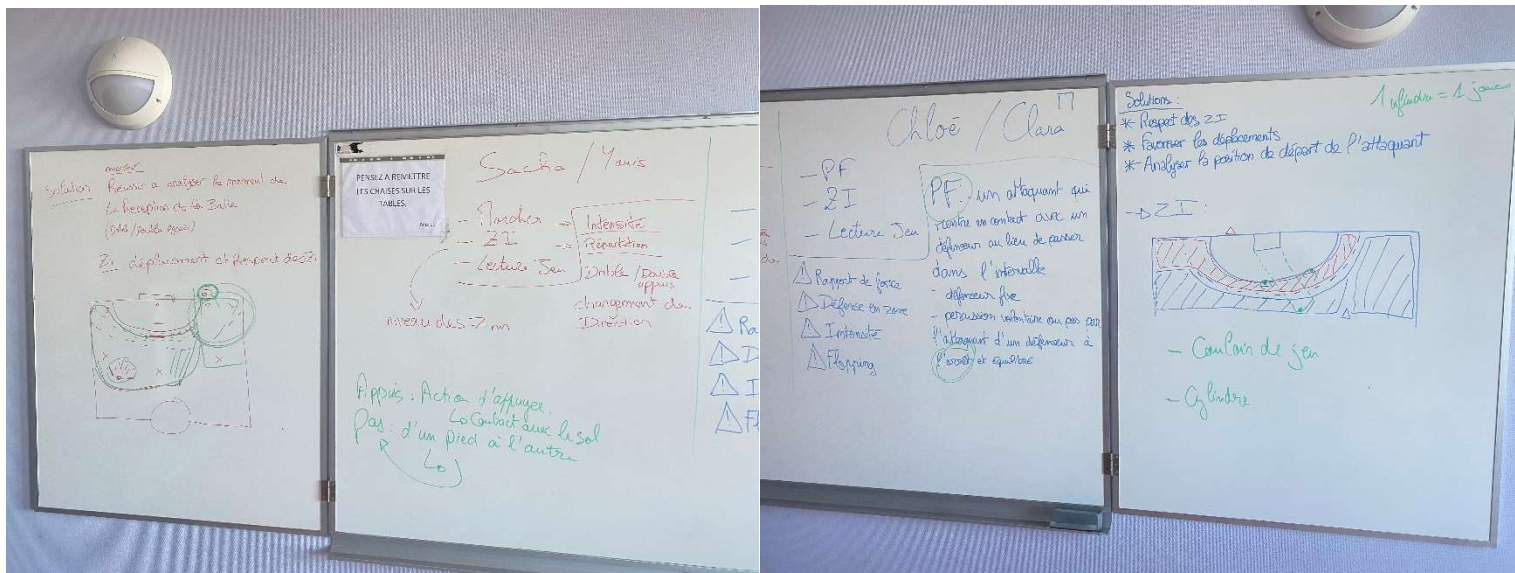 Solution
Réussir a analyser le moment de
la Réception de la Balle
ZI déplacement et Respect des ZI
PENSEZ A REMETTRE
LES CHAISES SUR LES
TABLES.
Sacha / Yanis
- Marcher → Intensité
- ZI → Répartition
- Lecture Jeu
Drible / Double
appuis
changement de
Direction
niveau des 7 m
Appuis : Action d'appuyer
↳ Contact avec le sol
Pas : d'un pied à l'autre
Chloé / Clara
- PF
- ZI
- Lecture Jeu
Rapport de force
Défense en zone
Intensité
Flopping
PF : - un attaquant qui
rentre en contact avec un
défenseur au lieu de passer
dans l'intervalle
- défenseur fixe
- percussion volontaire ou pas par
l'attaquant d'un défenseur à
l'arrêt et équilibré
Solutions :
* Respect des ZI
* Favoriser les déplacements
* Analyser la position de départ de l'attaquant
1 cylindre = 1 joueur
→ ZI :
- Couloir de jeu
- Cylindre